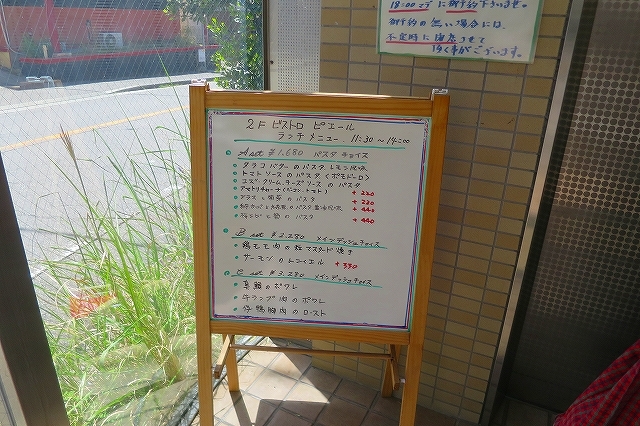 18:00マデに御予約下さいませ。
御予約の無い場合には、
不定時に閉店させて
頂く事がございます。
2F ビストロ ピエール
ランチ メニュー. 11:30～14:00
A set ¥1,680 パスタ チョイス
タラコ バターの パスタ レモン風味
トマト ソースの パスタ(ポモドーロ)
チーズ ソース の パスタ
アマトリチャーナ(ベーコン、トマト) +220
の パスタ +220
+440
の パスタ +440
B set ¥2,280 メインディッシュチョイス
鶏モモ肉 の 粒マスタード焼き
サーモン の ムニエル +330
C set ¥3,280 メインディッシュチョイス
真鯛 の ポワレ
牛ランプ肉 の ポワレ
仔鴨胸肉 の ロースト